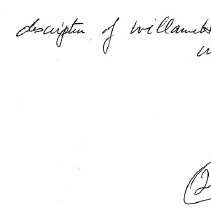 description of Willamet
2